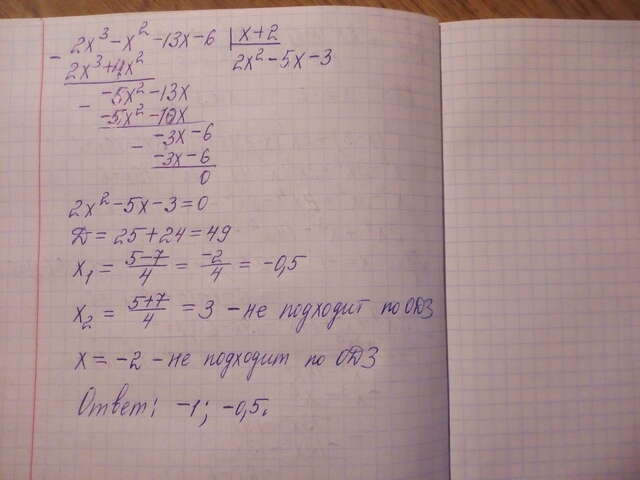 - 2x³ - x² - 13x - 6 | x + 2
2x³ + 4x² 2x² - 5x - 3
- -5x² - 13x
-5x² - 10x
- -3x - 6
-3x - 6
0
2x² - 5x - 3 = 0
Д = 25 + 24 = 49
x₁ = (5-7)/4 = -2/4 = -0,5
x₂ = (5+7)/4 = 3 - не подходит по ОДЗ
x = -2 - не подходит по ОДЗ
Ответ: -1; -0,5.